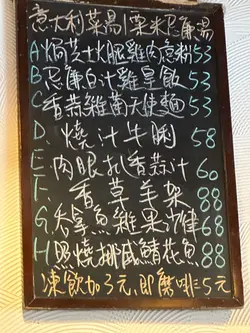 意大利菜湯/粟米忌廉湯
A焗芝士火腿雞肉意粉53
B忌廉白汁雞皇飯 53
C香蒜雜菌天使麵53
D.燒汁牛脷 58
E.肉眼扒香蒜汁 60
F.香草羊架 88
G.吞拿魚雜果沙律68
H照燒挪威鯖花魚88
凍飲加3元,即磨啡5元